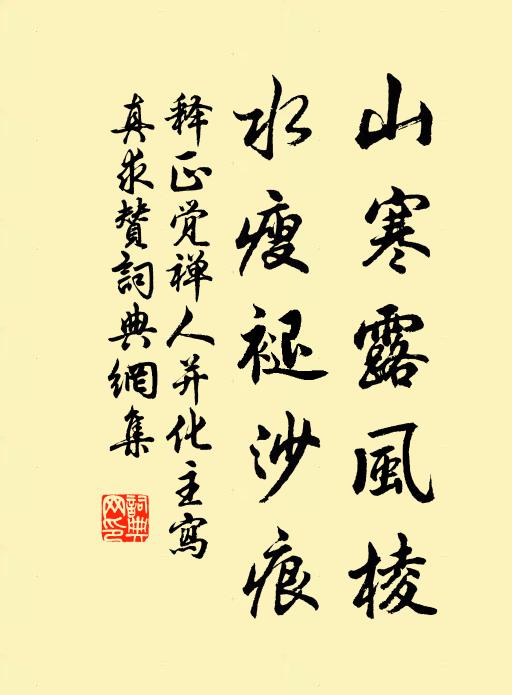 山寒露風棱
水瘦褪沙痕
释正觉禅人并化主寫
真求贊詞典網集
詞典網印